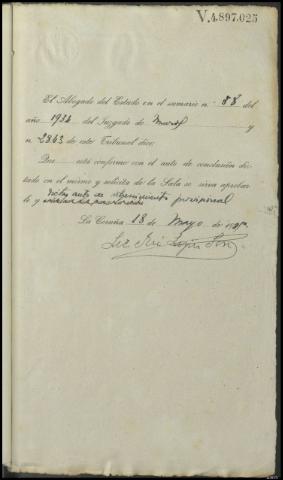 V.4.897.025
El Abogado del Estado en el sumario n. 88 del
año 1934 del Juzgado de y
n. 2863 de este Tribunal dice:
Que está conforme con el auto de conclusión dic-
tado en el mismo y solicita de la Sala se sirva aprobar
dicho auto de sobreseimiento provisional
lo y
La Coruña 18 de Mayo de